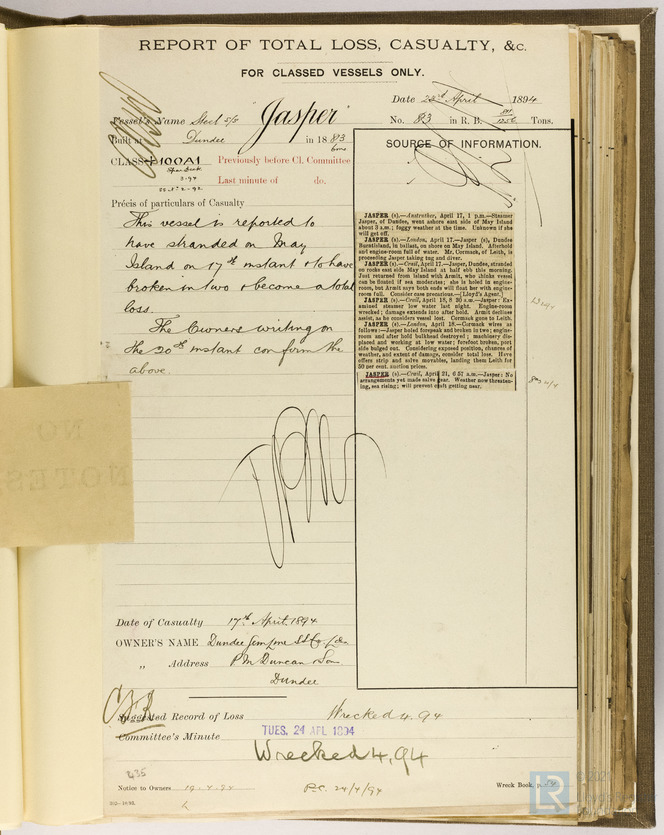 REPORT OF TOTAL LOSS, CASUALTY, &c.
FOR CLASSED VESSELS ONLY.
Date 23rd April 1894
Vessel's Name Steel s/s "Jasper"
No. 83 in R. B. Tons.
Built at Dundee in 1883
CLASS 100A1 Previously before Cl. Committee
Last minute of do.
SOURCE OF INFORMATION.
Précis of particulars of Casualty
This vessel is reported to
have stranded on May
Island on 17th instant & to have
broken in two & become a total
loss.
The Owners writing on
the 20th instant confirm the
above.
JASPER (s).—Anstruther, April 17, 1 p.m.—Steamer
Jasper, of Dundee, went ashore east side of May Island
about 3 a.m.; foggy weather at the time. Unknown if she
will get off.
JASPER (s).—London, April 17.—Jasper (s), Dundee
Burntisland, in ballast, on shore on May Island. Afterhold
and engine-room full of water. Mr. Cormack, of Leith, is
proceeding Jasper taking tug and diver.
JASPER (s).—Crail, April 17.—Jasper, Dundee, stranded
on rocks east side May Island at half ebb this morning.
Just returned from island with Armit, who thinks vessel
can be floated if sea moderates; she is holed in engine-
room, but Armit says both ends will float her with engine-
room full. Consider case precarious.—[Lloyd's Agent.]
JASPER (s).—Crail, April 18, 8 20 a.m.—Jasper: Ex-
amined steamer low water last night. Engine-room
wrecked; damage extends into after hold. Armit declines
assist, as he considers vessel lost. Cormack gone to Leith.
JASPER (s).—London, April 18.—Cormack wires as
follows:—Jasper holed forepeak and broken in two; engine-
room and after hold bulkhead destroyed; machinery dis-
placed and working at low water; forefoot broken, port
side bulged out. Considering exposed position, chances of
weather, and extent of damage, consider total loss. Have
offers strip and salve movables, landing them Leith for
50 per cent. auction prices.
JASPER (s).—Crail, April 21, 6 57 a.m.—Jasper: No
arrangements yet made salve gear. Weather now threaten-
ing, sea rising; will prevent craft getting near.
NO
NOTES
Date of Casualty 17th April 1894
OWNER'S NAME Dundee Gem Line SS Co Ldn
„ Address P M Duncan & Son
Dundee
Suggested Record of Loss Wrecked 4.94
Committee's Minute TUES. 24 APL 1894
Wrecked 4.94
Notice to Owners 19.4.94
P.C. 24/4/94
Wreck Book, p.